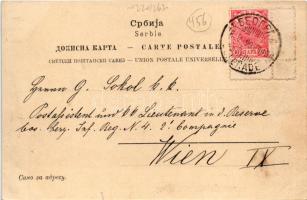 220/262
456
Србија
Serbie
ДОПИСНА КАРТА — CARTE POSTALE
СВЕТСКИ ПОШТАНСКИ САВЕЗ — UNION POSTALE UNIVERSELLE
Herrn G. Sokol k. k.
Postassistent und kk Lieutenant in d. Reserve
bos. herz. Inf. Reg. N. 4. 2t Compagnie
Wien IX
Само за адресу.